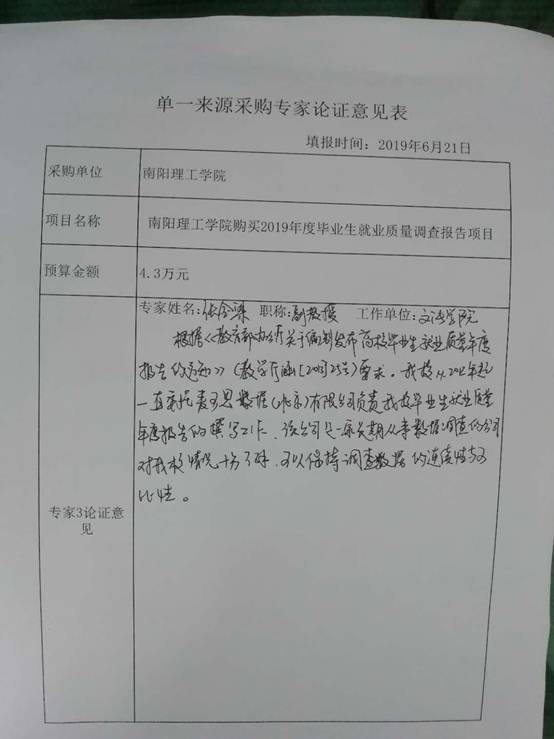 单一来源采购专家论证意见表
填报时间：2019年6月21日
采购单位 南阳理工学院
项目名称 南阳理工学院购买2019年度毕业生就业质量调查报告项目
预算金额 4.3万元
专家3论证意见
专家姓名：张金梁 职称：副教授 工作单位：文法学院
根据《教育部办公厅关于编制发布高校毕业生就业质量年度
报告的通知》（教学厅函[2013]25号）要求。我校从2014年起
一直委托麦可思数据（北京）有限公司负责我校毕业生就业质量
年度报告的撰写工作。该公司是一家长期从事数据调查的公司
对我校情况十分了解，可以保持调查数据的连续性与可
比性。